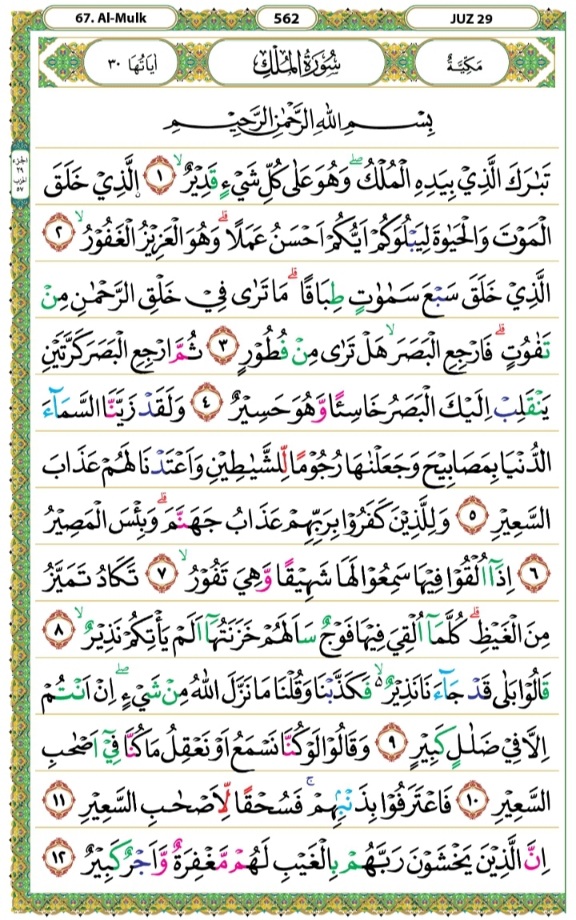 67. Al-Mulk 562 JUZ 29
مَكِّيَّةٌ سُوْرَةُ الْمُلْكِ اٰيَاتُهَا ٣٠
بِسْمِ اللهِ الرَّحْمٰنِ الرَّحِيْمِ
الجزء ٢٩
الحزب ٥٧
تَبٰرَكَ الَّذِيْ بِيَدِهِ الْمُلْكُۖ وَهُوَ عَلٰى كُلِّ شَيْءٍ قَدِيْرٌۙ ١ ۨالَّذِيْ خَلَقَ
الْمَوْتَ وَالْحَيٰوةَ لِيَبْلُوَكُمْ اَيُّكُمْ اَحْسَنُ عَمَلًاۗ وَهُوَ الْعَزِيْزُ الْغَفُوْرُۙ ٢
الَّذِيْ خَلَقَ سَبْعَ سَمٰوٰتٍ طِبَاقًاۗ مَا تَرٰى فِيْ خَلْقِ الرَّحْمٰنِ مِنْ
تَفٰوُتٍۗ فَارْجِعِ الْبَصَرَۙ هَلْ تَرٰى مِنْ فُطُوْرٍ ٣ ثُمَّ ارْجِعِ الْبَصَرَ كَرَّتَيْنِ
يَنْقَلِبْ اِلَيْكَ الْبَصَرُ خَاسِئًا وَّهُوَ حَسِيْرٌ ٤ وَلَقَدْ زَيَّنَّا السَّمَاۤءَ
الدُّنْيَا بِمَصَابِيْحَ وَجَعَلْنٰهَا رُجُوْمًا لِّلشَّيٰطِيْنِ وَاَعْتَدْنَا لَهُمْ عَذَابَ
السَّعِيْرِ ٥ وَلِلَّذِيْنَ كَفَرُوْا بِرَبِّهِمْ عَذَابُ جَهَنَّمَۗ وَبِئْسَ الْمَصِيْرُ
٦ اِذَآ اُلْقُوْا فِيْهَا سَمِعُوْا لَهَا شَهِيْقًا وَّهِيَ تَفُوْرُۙ ٧ تَكَادُ تَمَيَّزُ
مِنَ الْغَيْظِۗ كُلَّمَآ اُلْقِيَ فِيْهَا فَوْجٌ سَاَلَهُمْ خَزَنَتُهَآ اَلَمْ يَأْتِكُمْ نَذِيْرٌۙ ٨
قَالُوْا بَلٰى قَدْ جَاۤءَنَا نَذِيْرٌۙ ەۙ فَكَذَّبْنَا وَقُلْنَا مَا نَزَّلَ اللهُ مِنْ شَيْءٍۖ اِنْ اَنْتُمْ
اِلَّا فِيْ ضَلٰلٍ كَبِيْرٍ ٩ وَقَالُوْا لَوْ كُنَّا نَسْمَعُ اَوْ نَعْقِلُ مَا كُنَّا فِيْٓ اَصْحٰبِ
السَّعِيْرِ ١٠ فَاعْتَرَفُوْا بِذَنْۢبِهِمْۚ فَسُحْقًا لِّاَصْحٰبِ السَّعِيْرِ ١١
اِنَّ الَّذِيْنَ يَخْشَوْنَ رَبَّهُمْ بِالْغَيْبِ لَهُمْ مَّغْفِرَةٌ وَّاَجْرٌ كَبِيْرٌ ١٢